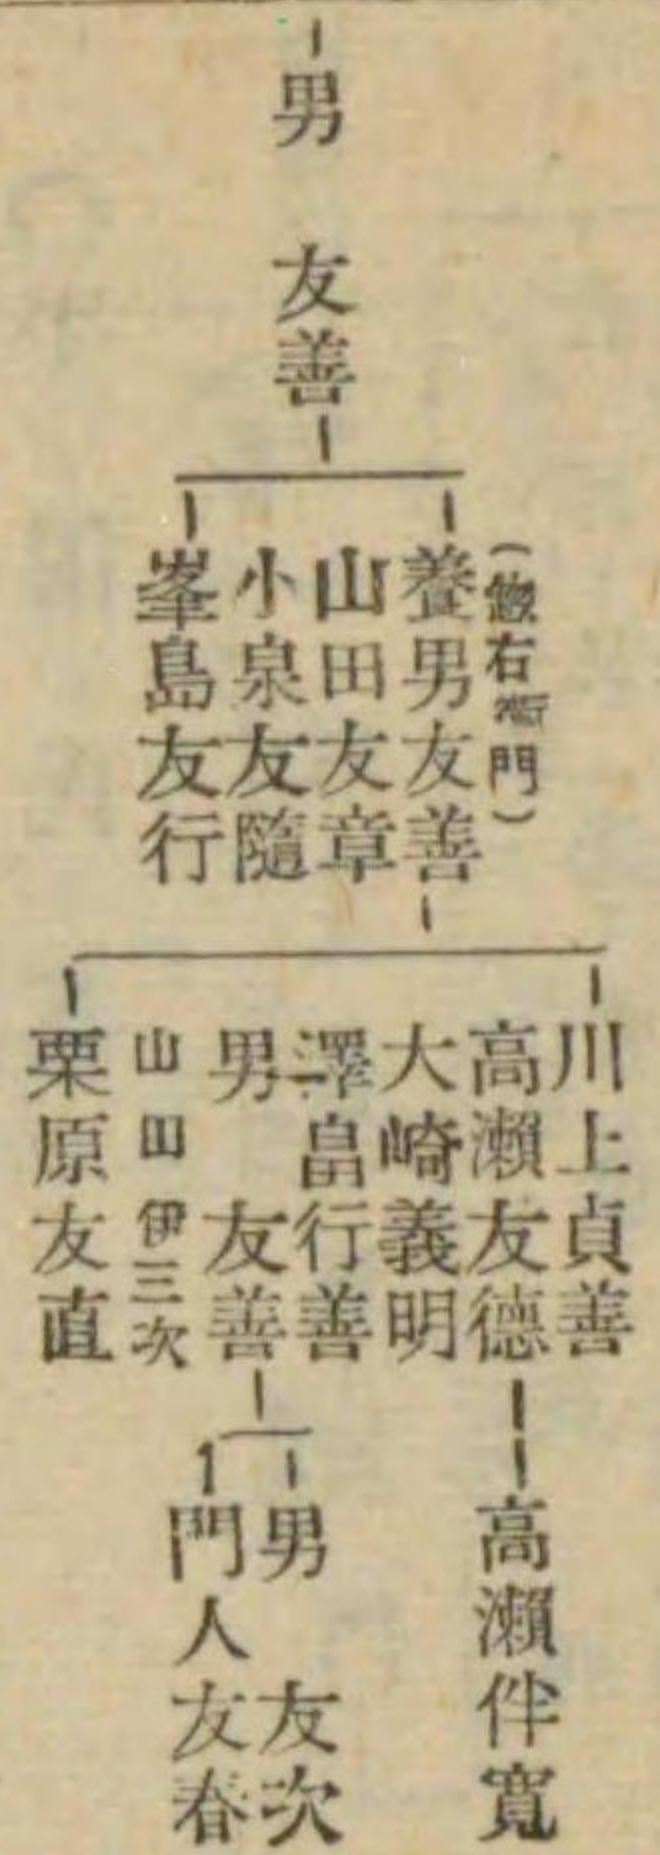 男 友善
(惣右衛門)
養男友善
山田友章
小泉友隨
峯島友行
川上貞善
高瀨友德
大崎義明
澤畠行善
男 友善
山田伊三次
栗原友直
高瀨伴寬
男 友次
門人友春